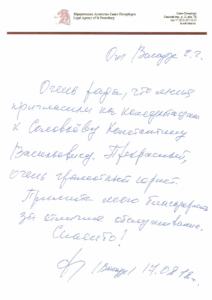 Юридическое Агентство Санкт-Петербурга
Legal Agency of St. Petersburg
Санкт-Петербург
От
Очень рада, что меня
пригласили на консультацию
к Соловьёву Константину
Васильевичу. Прекрасный,
очень грамотный юрист.
Примите мою благодарность
за отличное обслуживание.
Спасибо!
17.08.18г.